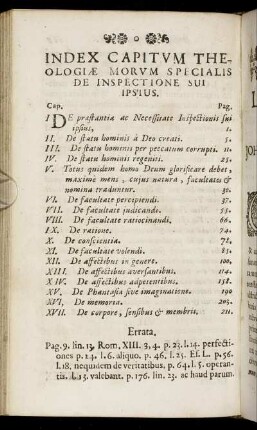 INDEX CAPITVM THE-
OLOGIÆ MORVM SPECIALIS
DE INSPECTIONE SUI
IPSIUS.
Cap. Pag.
I DE præstantia ac Necessitate Inspectionis sui
ipsius, 1.
II. De statu hominis à Deo creati. 5.
III. De statu hominis per peccatum corrupti. 11.
IV. De statu hominis regeniti. 25.
V. Totus quidem homo Deum glorificare debet,
maxime mens, cujus natura, facultates &
nomina traduntur. 30.
VI. De facultate percipiendi. 37.
VII. De facultate judicandi. 55.
VIII. De facultate ratiocinandi. 66.
IX. De ratione. 74.
X. De conscientia. 78.
XI. De facultate volendi. 85.
XII. De affectibus in genere. 100.
XIII. De affectibus aversantibus. 114.
XIV. De affectibus adpetentibus. 158.
XV. De Phantasia sive imaginatione. 190
XVI. De memoria. 203.
XVII. De corpore, sensibus & membris. 211.
Errata.
Pag. 9. lin. 13. Rom. XIII. 3, 4. p. 23. l. 14. perfecti-
ones p. 24. l. 6. aliquo. p. 46. l. 25. Ef. L. p. 56.
l. 18. nequidem de veritatibus. p. 64. l. 5. operan-
tis. l. 13. valebant. p. 176. lin. 23. ac haud parum.